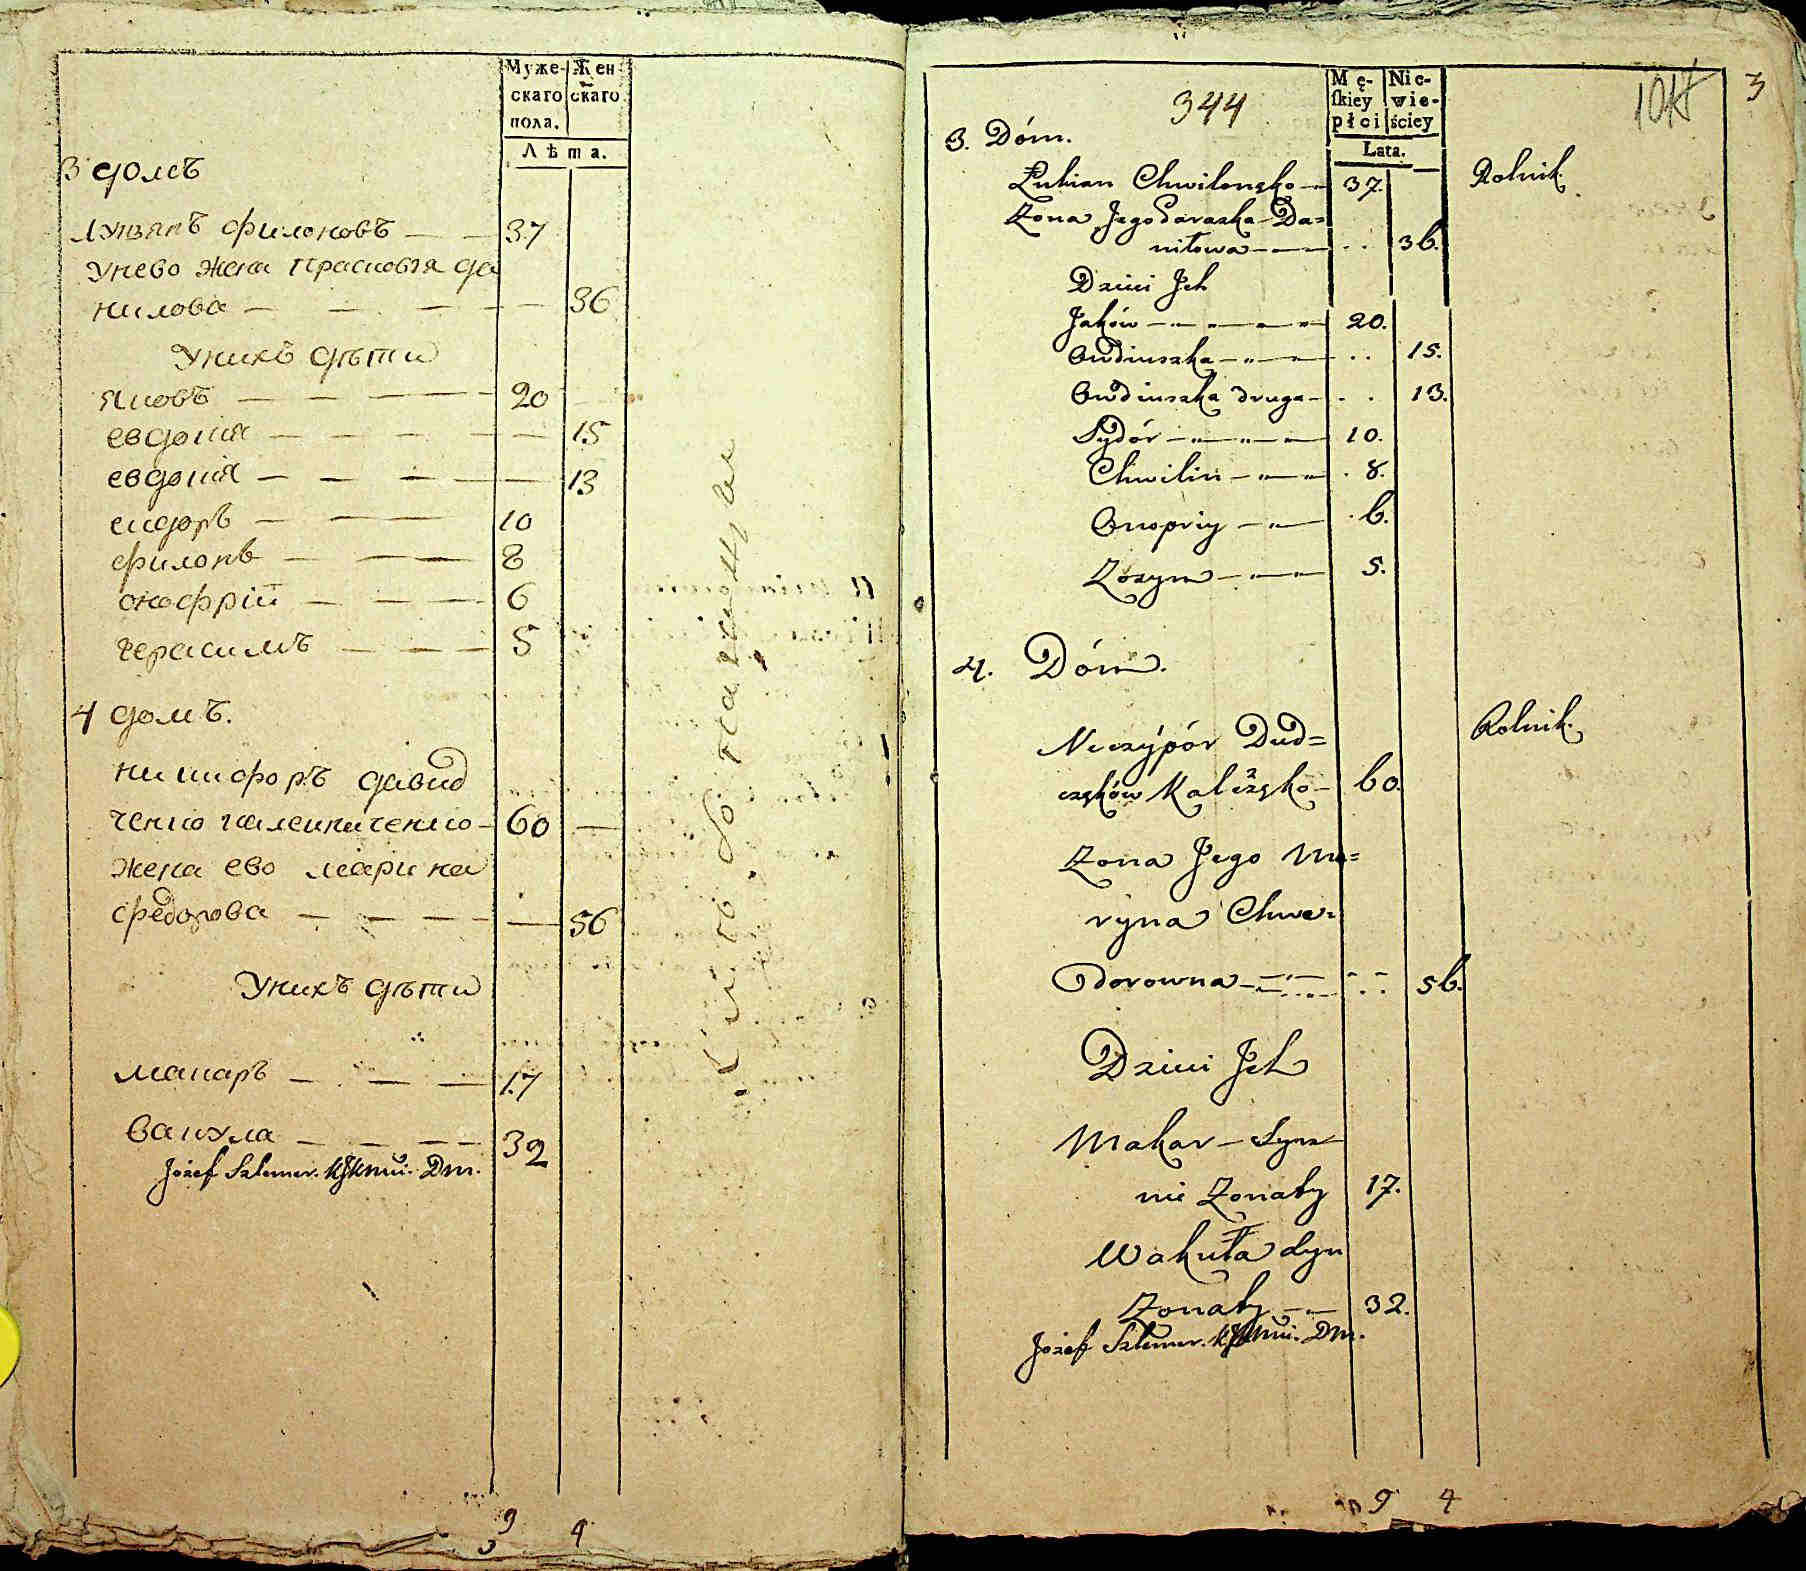 Муже-
скаго
пола.
Жен
скаго
Лѣта.
3 домъ
Лукянъ филоновъ — — 37
унево жена прасковья да
нилова — — — — 36
Унихъ дѣти
яковъ — — — — 20
евдокия — — — — — 15
евдокия — — — — — 13
сидоръ — — — 10
филопъ — — — 8
онофрій — — — 6
герасимъ — — — 5
4 домъ.
никифоръ давид
ченко калениченко — 60 —
жена ево марина
федорова — — — — — 56
Унихъ дѣти
макаръ — — — 17
вакула — — — — 32
Józef Szlemer. Dm.
9 4
3
344
Mę-
skiey
płci
Nie-
wie-
ściey
Lata.
3
3. Dóm.
Łukian Chwilonsko — 37. Rolnik.
Żona Jego Paraska Da=
niłowa — — .. 36.
Dzieci Jch
Jaków — „ — „ — „ — 20.
Owdiuszka — „ — „ .. 15.
Owdiuszka druga — . . 13.
Sydór — „ — „ — „ 10.
Chwilin — „ — „ . 8.
Onopriy — „ — . 6.
Zózym — „ — 5.
4. Dóm.
Rolnik.
Neczÿpór Dud=
czsków Kalżsko — 60.
Żona Jego Ma=
ryna Chwe=
dorowna — .. 56.
Dzieci Jch
Makar — Syn —
nie Żonaty 17.
Wakuła Syn
Żonaty — „ — 32.
Józef Szlemer. Dm.
9 4